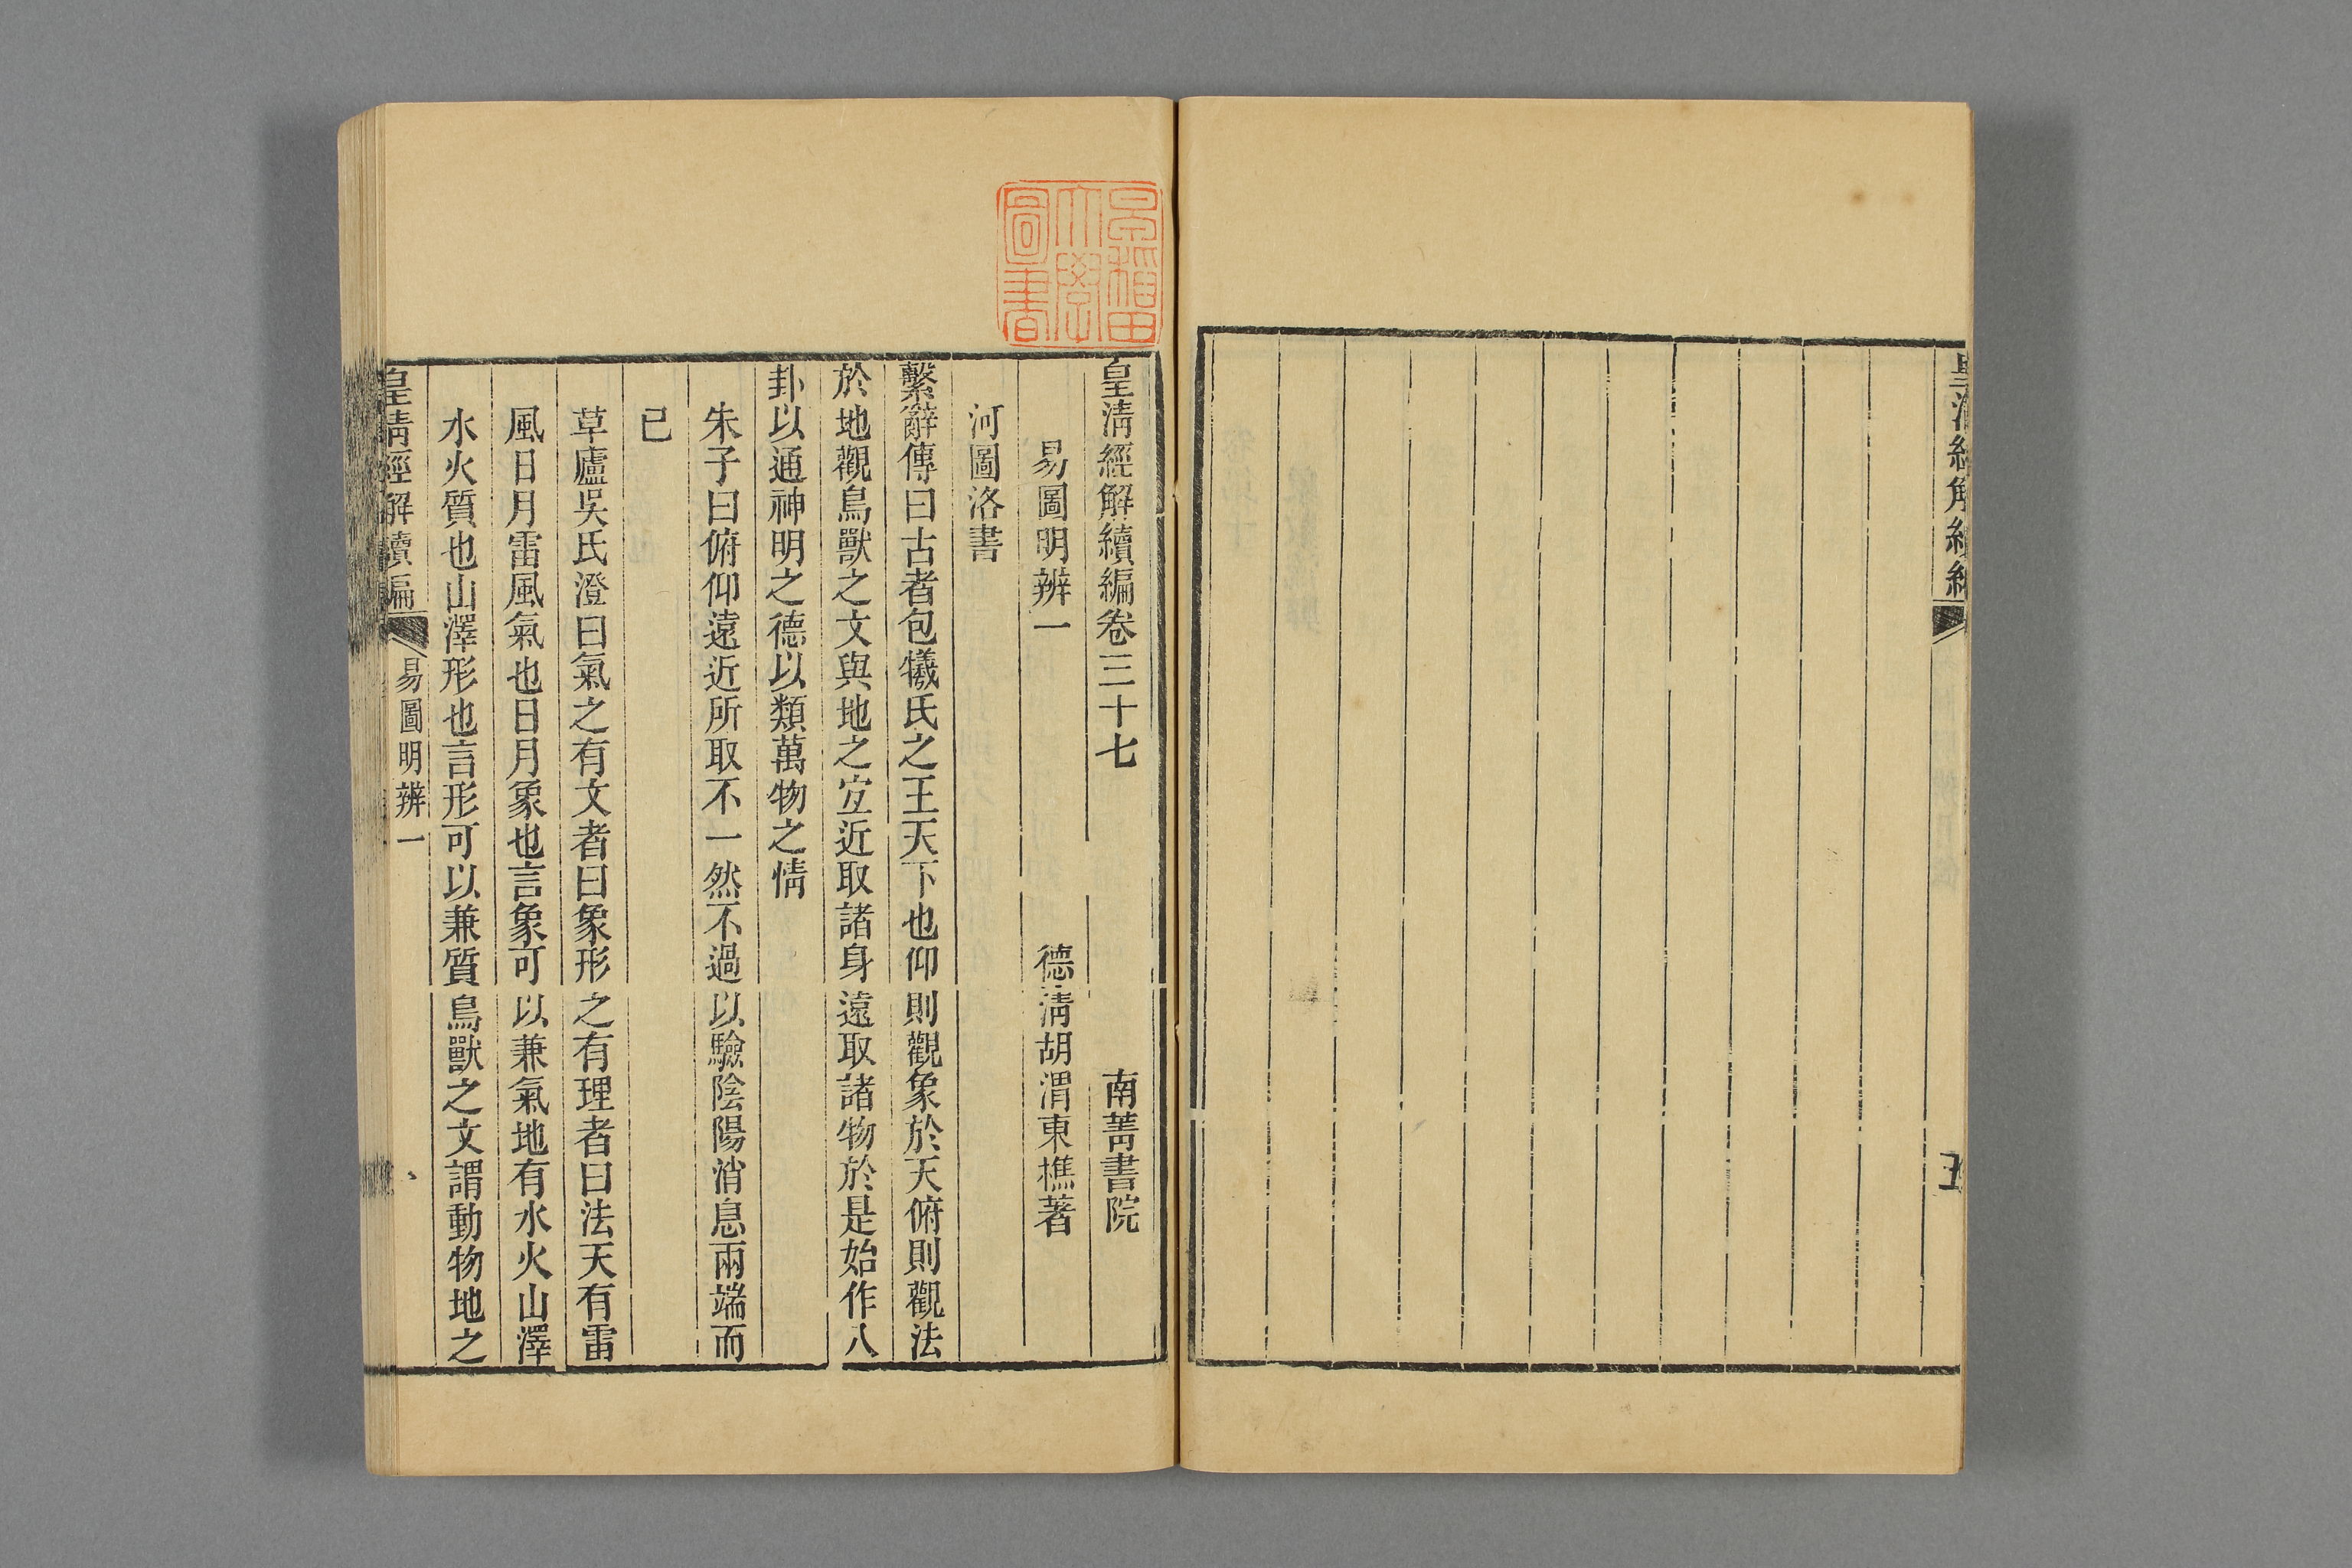 皇清經解續編
五
早稻田大學圖書
皇清經解續編卷三十七　南菁書院
易圖明辨一　德清胡渭東樵著
河圖洛書
繫辭傳曰古者包犧氏之王天下也仰則觀象於天俯則觀法
於地觀鳥獸之文與地之宐近取諸身遠取諸物於是始作八
卦以通神明之德以類萬物之情
朱子曰俯仰遠近所取不一然不過以驗陰陽消息兩端而
已
草廬吳氏澄曰氣之有文者曰象形之有理者曰法天有雷
風日月雷風氣也日月象也言象可以兼氣地有水火山澤
水火質也山澤形也言形可以兼質鳥獸之文謂動物地之
皇清經解續編　易圖明辨一